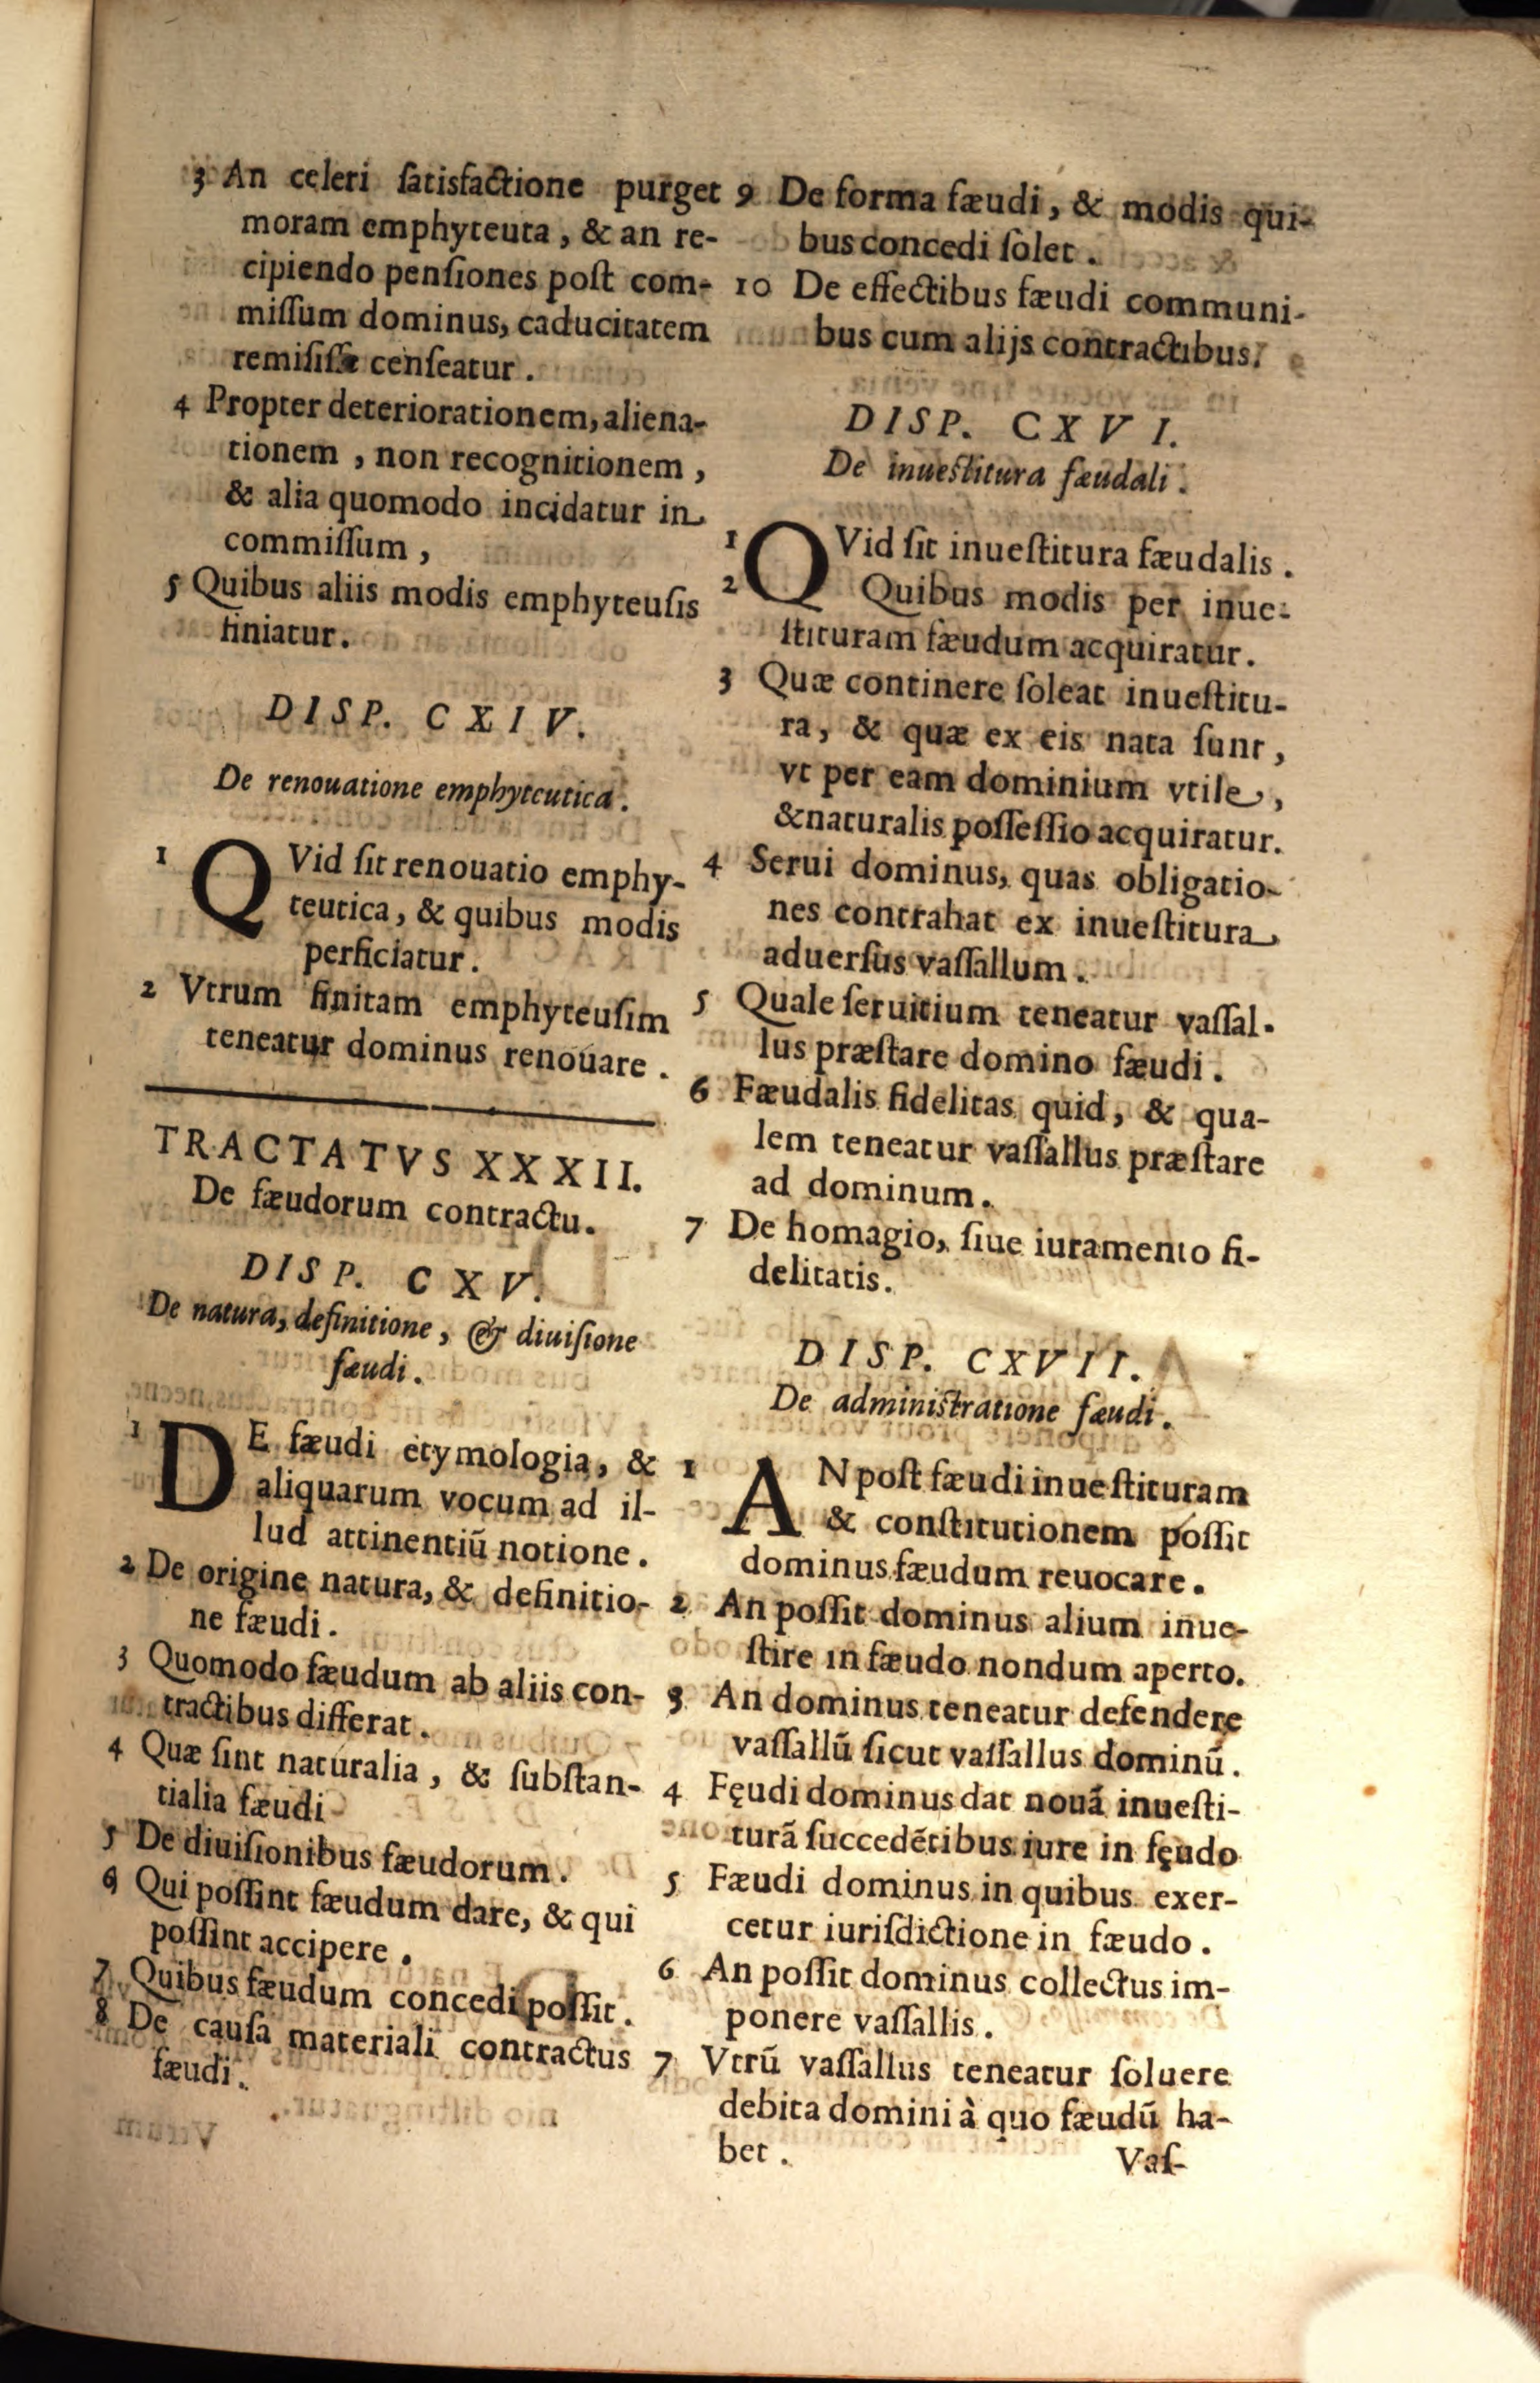 3 An celeri ſatisfactione purget
moram emphyteuta, & an re-
cipiendo penſiones poſt com-
miſſum dominus, caducitatem
remiſiſſe cenſeatur.
4 Propter deteriorationem, aliena-
tionem, non recognitionem,
& alia quomodo incidatur in
commiſſum,
5 Quibus aliis modis emphyteuſis
finiatur.
DISP. CXIV.
De renouatione emphyteutica.
1 QVid ſit renouatio emphy-
teutica, & quibus modis
perficiatur.
2 Vtrum finitam emphyteuſim
teneatur dominus renouare.
TRACTATVS XXXII.
De fæudorum contractu.
DISP. CXV.
De natura, definitione, & diuiſione
fæudi.
1 DE fæudi etymologia, &
aliquarum vocum ad il-
lud attinentiū notione.
2 De origine natura, & definitio-
ne fæudi.
3 Quomodo fæudum ab aliis con-
tractibus differat.
4 Quæ ſint naturalia, & ſubſtan-
tialia fæudi
5 De diuiſionibus fæudorum.
6 Qui poſſint fæudum dare, & qui
poſſint accipere.
7 Quibus fæudum concedi poſſit.
8 De cauſa materiali contractus
fæudi.
9 De forma fæudi, & modis qui-
bus concedi ſolet.
10 De effectibus fæudi communi-
bus cum alijs contractibus.
DISP. CXVI.
De inueſtitura fæudali.
1 QVid ſit inueſtitura fæudalis.
2 Quibus modis per inue-
ſtituram fæudum acquiratur.
3 Quæ continere ſoleat inueſtitu-
ra, & quæ ex eis nata ſunt,
vt per eam dominium vtile,
& naturalis poſſeſſio acquiratur.
4 Serui dominus, quas obligatio-
nes contrahat ex inueſtitura
aduerſus vaſſallum.
5 Quale ſeruitium teneatur vaſſal-
lus præſtare domino fæudi.
6 Fæudalis fidelitas quid, & qua-
lem teneatur vaſſallus præſtare
ad dominum.
7 De homagio, ſiue iuramento fi-
delitatis.
DISP. CXVII.
De adminiſtratione fæudi.
1 AN poſt fæudi inueſtituram
& conſtitutionem poſſit
dominus fæudum reuocare.
2 An poſſit dominus alium inue-
ſtire in fæudo nondum aperto.
3 An dominus teneatur defendere
vaſſallū ſicut vaſſallus dominū.
4 Fęudi dominus dat nouā inueſti-
turā ſuccedētibus iure in fęudo
5 Fæudi dominus in quibus exer-
cetur iuriſdictione in fæudo.
6 An poſſit dominus collectus im-
ponere vaſſallis.
7 Vtrū vaſſallus teneatur ſoluere
debita domini à quo fæudū ha-
bet.
Vaſ-